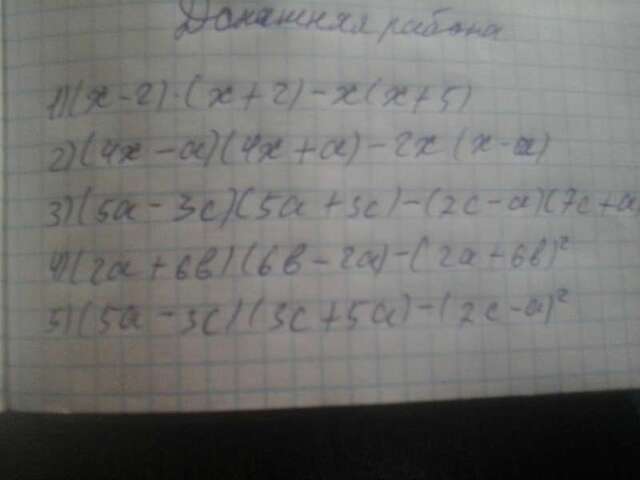 Домашняя работа
1)(x-2)·(x+2)-x(x+5)
2)(4x-a)(4x+a)-2x(x-a)
3)(5a-3c)(5a+3c)-(2c-a)(7c+a
4)(2a+6в)(6в-2a)-(2a+6в)²
5)(5a-3c)(3c+5a)-(2c-a)²